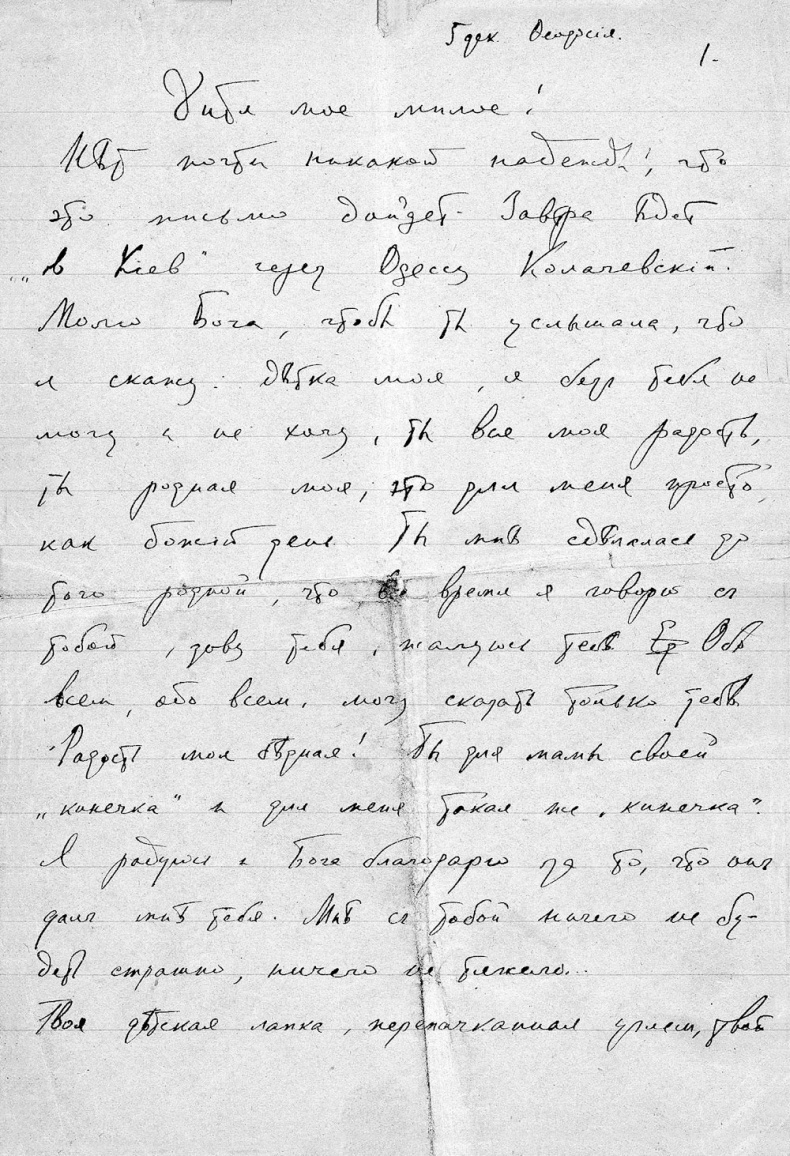 5 дек. Ѳеодосія.
1.
Дитя мое милое!
Нѣт почти никакой надежды, что
это письмо дойдет. Завтра ѣдет
„в Кіев“ через Одессу Колачевскій.
Молю Бога, чтобы ты услышала, что
я скажу: дѣтка моя, я без тебя не
могу и не хочу, ты вся моя радость,
ты родная моя, это для меня просто,
как божій день. Ты мнѣ сдѣлалась до
того родной, что все время я говорю съ
тобой, зову тебя, жалуюсь тебѣ Обо
всем, обо всем, могу сказать только тебѣ
Радость моя бѣдная! Ты для мамы своей
„кинечка“ и для меня такая же „кинечка“.
Я радуюсь и Бога благодарю за то, что онъ
далъ мнѣ тебя. Мнѣ съ тобой ничего не бу-
дет страшно, ничего не тяжело...
Твоя дѣтская лапка, перепачканная углем, твой